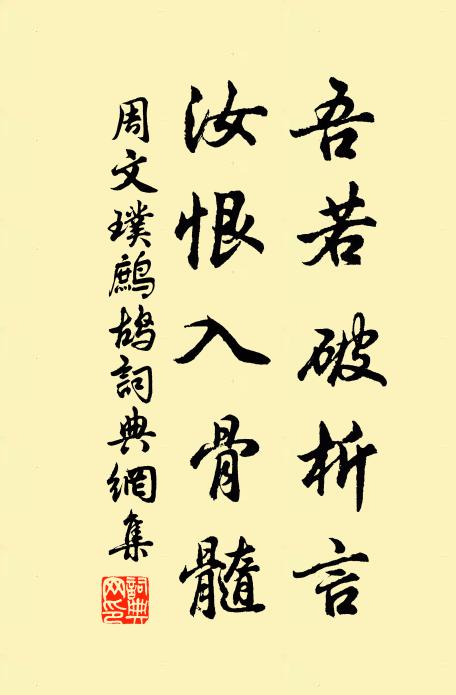 吾若破析言
汝恨入骨髓
周文璞鹧鸪詞典網集
詞典網印